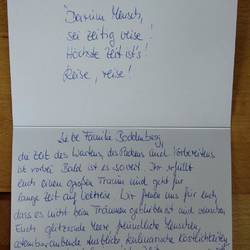 Darum Mensch,
sei zeitig weise!
Höchste Zeit ist's!
Reise, reise!
Liebe Familie Boddenberg,
die Zeit des Wartens, des Packens und Vorbereitens
ist vorbei. Bald ist es soweit. Ihr erfüllt
Euch einen großen Traum und geht für
lange Zeit auf Weltreise. Wir freuen uns für Euch,
dass es nicht beim Träumen geblieben ist und wünschen
Euch glitzernde Meere, freundliche Menschen,
atemberaubende Ausblicke, kulinarische Köstlichkeiten